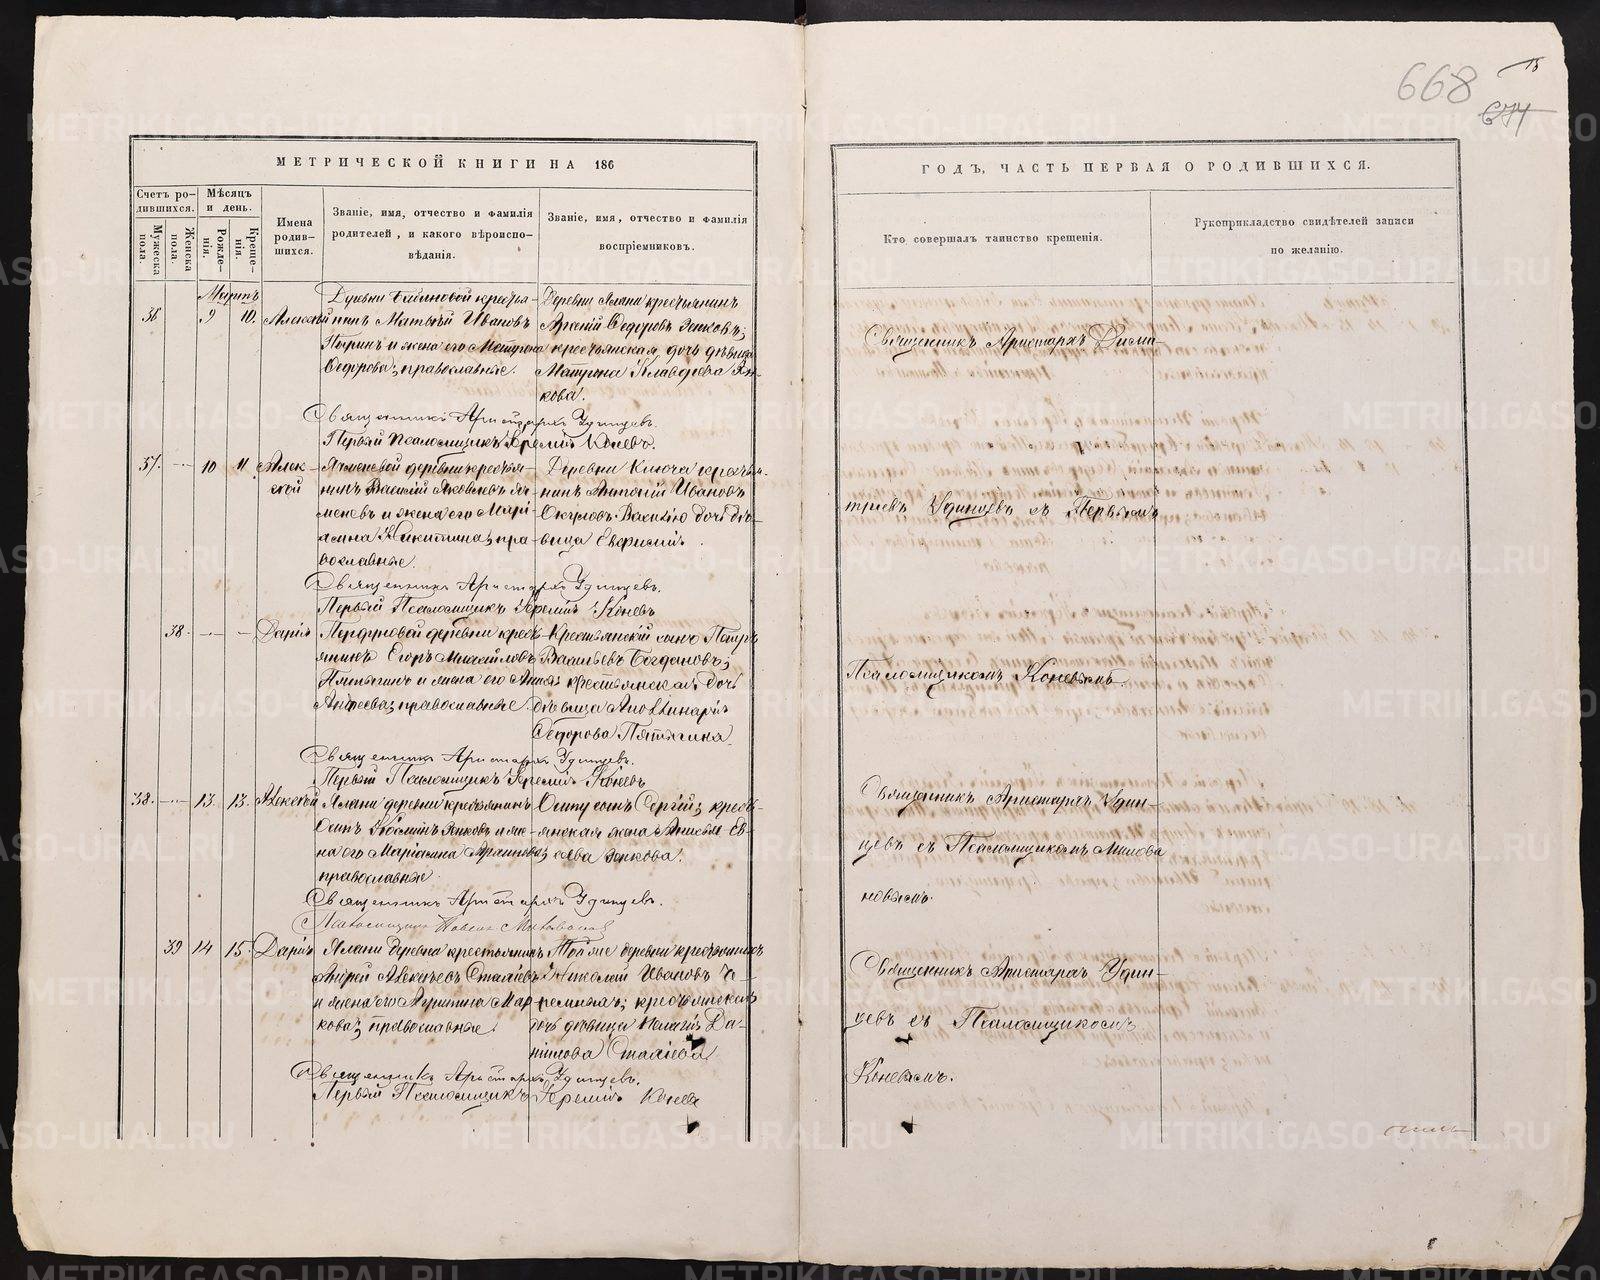 668
15
674
МЕТРИЧЕСКОЙ КНИГИ НА 186
Счетъ ро-
дившихся.
Мужеска пола.
Женска пола.
Мѣсяцъ
и день.
Рожде-
нія.
Креще-
нія.
Имена
родив-
шихся.
Званіе, имя, отчество и фамилія
родителей, и какого вѣроиспо-
вѣданія.
Званіе, имя, отчество и фамилія
воспріемниковъ.
Мартъ
36 9 10. Алексѣй
Деревни крестья-
нинъ Матвѣй Ивановъ
и жена его Матрона
Ѳедорова, православные.
Деревни Ялани крестьянинъ
Ѳедоровъ Зенковъ;
крестьянская дочь дѣвица
Матрона Клавдіева Зен-
кова.
Священникъ Аристархъ Удинцевъ.
Первый Псаломщикъ Іеремія Коневъ.
37. 10 11 Алек-
сѣй
деревни крестья-
нинъ Василій Яковлевъ Ач-
меневъ и жена его Марі-
амна Никитина, пра-
вославные.
Деревни Ключа крестья-
нинъ Антоній Ивановъ
Окуловъ. дочь дѣ-
вица Евфимія.
Священникъ Аристархъ Удинцевъ.
Первый Псаломщикъ Іеремія Коневъ
38. Дарія
деревни кресть-
янинъ Егоръ Михайловъ
и жена его
Андреева, православные
Крестьянскій сынъ Петръ
Васильевъ Богдановъ;
крестьянская дочь
дѣвица Аполлинарія
Ѳедорова Пятыгина.
Священникъ Аристархъ Удинцевъ.
Первый Псаломщикъ Іеремія Коневъ
38. 13. 13. Алексѣй
Ялани деревни крестьянинъ
Осипъ Козминъ Зенковъ и же-
на его Маріамна
православные.
Осипу сынъ Сергій; кресть-
янская жена
ева Зенкова.
Священникъ Аристархъ Удинцевъ.
Псаломщикъ Павелъ Миловановъ
39 14 15. Дарія
Ялани деревни крестьянинъ
Андрей Алексѣевъ
и жена его Мар-
кова, православные.
деревни крестьянинъ
Николай Ивановъ Че-
ремныхъ; крестьянская
дочь дѣвица Пелагія Да-
нилова
Священникъ Аристархъ Удинцевъ.
Первый Псаломщикъ Іеремія Коневъ
ГОДЪ, ЧАСТЬ ПЕРВАЯ О РОДИВШИХСЯ.
Кто совершалъ таинство крещенія.
Рукоприкладство свидѣтелей записи
по желанію.
Священникъ Аристархъ Дими-
тріевъ Удинцевъ съ Первымъ
Псаломщикомъ Коневымъ.
Священникъ Аристархъ Удин-
цевъ съ Псаломщикомъ Милова
новымъ.
Священникъ Аристархъ Удин-
цевъ съ Псаломщикомъ
Коневымъ.
METRIKI.GASO-URAL.RU